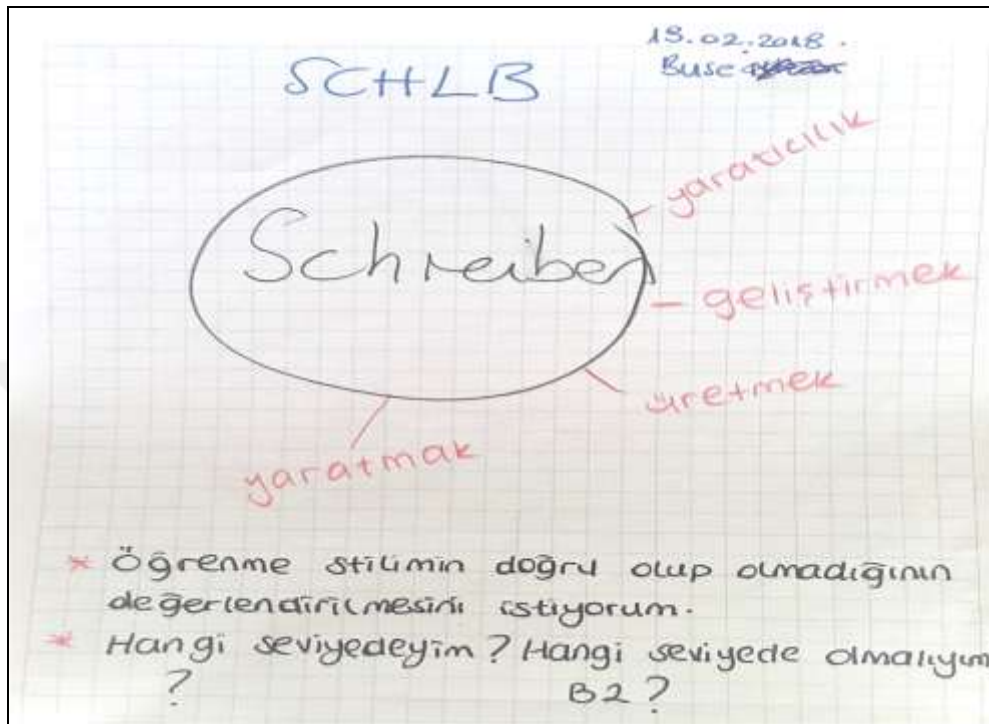 SCHLB
19.02.2018.
Buse
Schreiben
yaratıcılık
geliştirmek
üretmek
yaratmak
* Öğrenme stilimin doğru olup olmadığının
değerlendirilmesini istiyorum.
* Hangi seviyedeyim? Hangi seviyede olmalıyım
? B2?